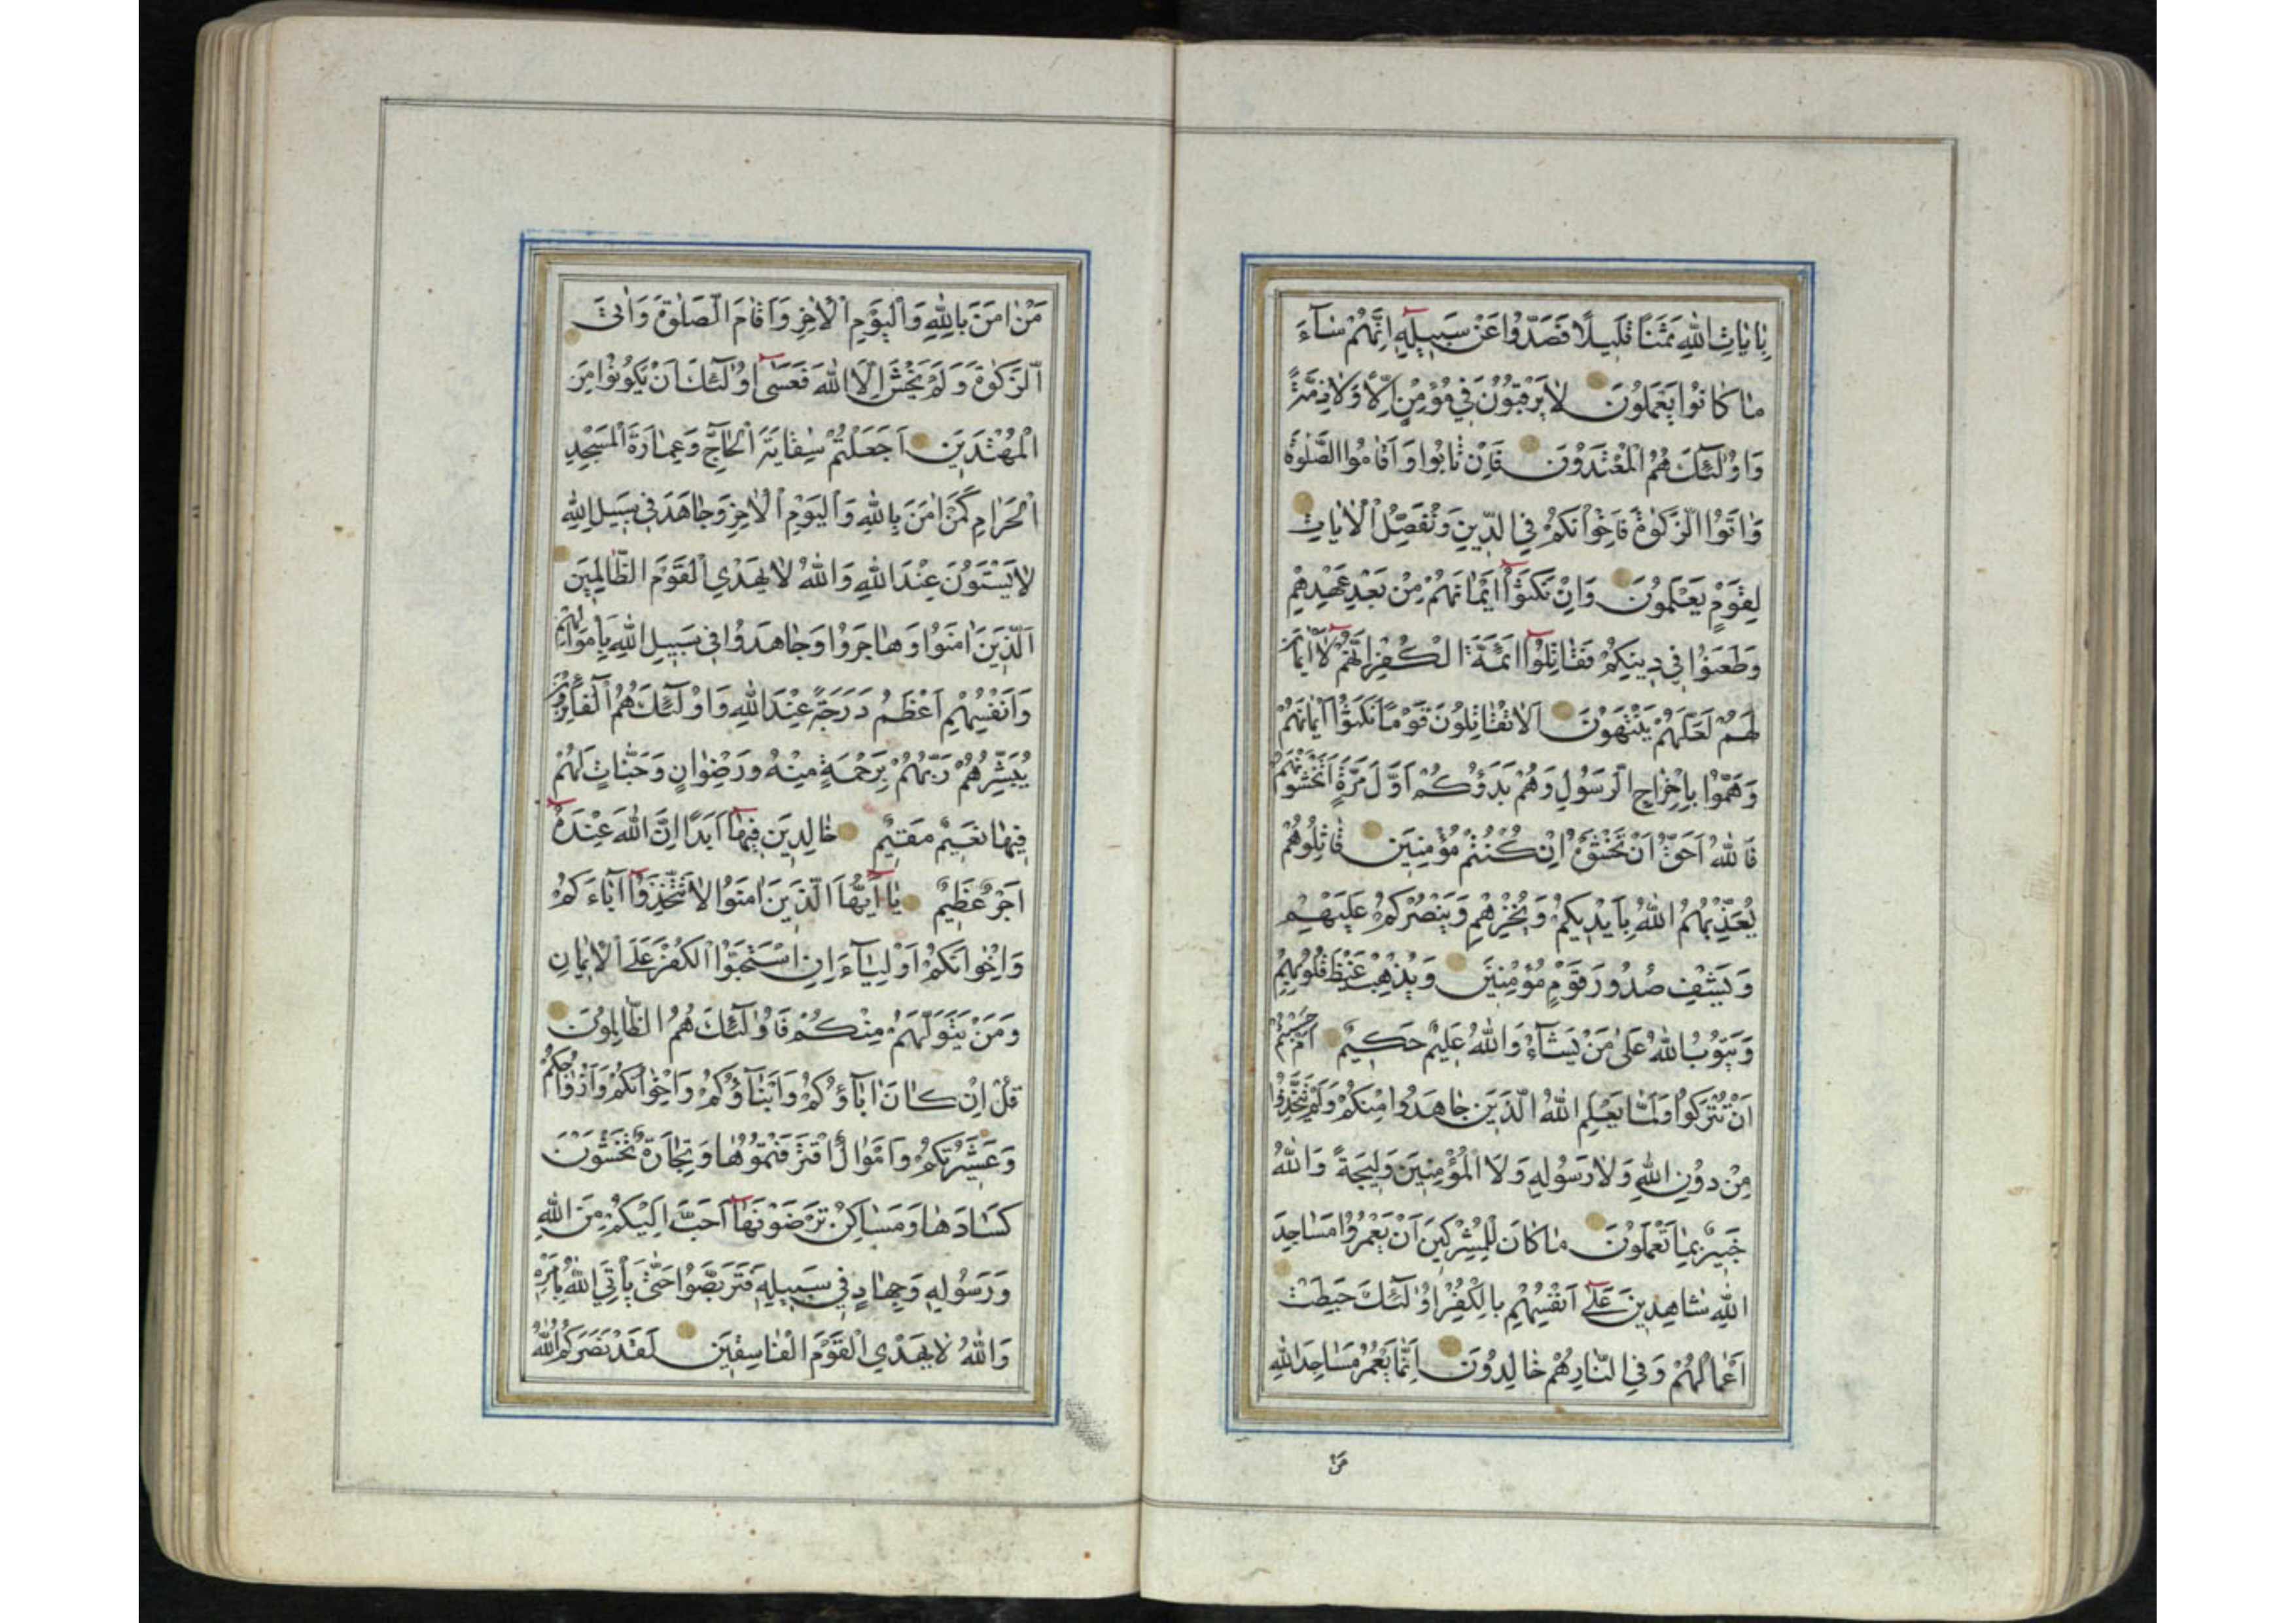 بِاٰيَاتِ اللّٰهِ ثَمَنًا قَلِيلًا فَصَدُّوا عَنْ سَبِيلِهِ اِنَّهُمْ سَاۤءَ
مَا كَانُوا يَعْمَلُونَ لَا يَرْقُبُونَ فِي مُؤْمِنٍ اِلًّا وَلَا ذِمَّةً
وَاُولٰۤئِكَ هُمُ الْمُعْتَدُونَ فَاِنْ تَابُوا وَاَقَامُوا الصَّلٰوةَ
وَاٰتَوُا الزَّكٰوةَ فَاِخْوَانُكُمْ فِي الدِّينِ وَنُفَصِّلُ الْاٰيَاتِ
لِقَوْمٍ يَعْلَمُونَ وَاِنْ نَكَثُوۤا اَيْمَانَهُمْ مِنْ بَعْدِ عَهْدِهِمْ
وَطَعَنُوا فِي دِينِكُمْ فَقَاتِلُوۤا اَئِمَّةَ الْكُفْرِ اِنَّهُمْ لَاۤ اَيْمَانَ
لَهُمْ لَعَلَّهُمْ يَنْتَهُونَ اَلَا تُقَاتِلُونَ قَوْمًا نَكَثُوۤا اَيْمَانَهُمْ
وَهَمُّوا بِاِخْرَاجِ الرَّسُولِ وَهُمْ بَدَؤُكُمْ اَوَّلَ مَرَّةٍ اَتَخْشَوْنَهُمْ
فَاللّٰهُ اَحَقُّ اَنْ تَخْشَوْهُ اِنْ كُنْتُمْ مُؤْمِنِينَ قَاتِلُوهُمْ
يُعَذِّبْهُمُ اللّٰهُ بِاَيْدِيكُمْ وَيُخْزِهِمْ وَيَنْصُرْكُمْ عَلَيْهِمْ
وَيَشْفِ صُدُورَ قَوْمٍ مُؤْمِنِينَ وَيُذْهِبْ غَيْظَ قُلُوبِهِمْ
وَيَتُوبُ اللّٰهُ عَلٰى مَنْ يَشَاۤءُ وَاللّٰهُ عَلِيمٌ حَكِيمٌ اَمْ حَسِبْتُمْ
اَنْ تُتْرَكُوا وَلَمَّا يَعْلَمِ اللّٰهُ الَّذِينَ جَاهَدُوا مِنْكُمْ وَلَمْ يَتَّخِذُوا
مِنْ دُونِ اللّٰهِ وَلَا رَسُولِهِ وَلَا الْمُؤْمِنِينَ وَلِيجَةً وَاللّٰهُ
خَبِيرٌ بِمَا تَعْمَلُونَ مَا كَانَ لِلْمُشْرِكِينَ اَنْ يَعْمُرُوا مَسَاجِدَ
اللّٰهِ شَاهِدِينَ عَلٰۤى اَنْفُسِهِمْ بِالْكُفْرِ اُولٰۤئِكَ حَبِطَتْ
اَعْمَالُهُمْ وَفِي النَّارِ هُمْ خَالِدُونَ اِنَّمَا يَعْمُرُ مَسَاجِدَ اللّٰهِ
مَنْ
مَنْ اٰمَنَ بِاللّٰهِ وَالْيَوْمِ الْاٰخِرِ وَاَقَامَ الصَّلٰوةَ وَاٰتَى
الزَّكٰوةَ وَلَمْ يَخْشَ اِلَّا اللّٰهَ فَعَسٰۤى اُولٰۤئِكَ اَنْ يَكُونُوا مِنَ
الْمُهْتَدِينَ اَجَعَلْتُمْ سِقَايَةَ الْحَاۤجِّ وَعِمَارَةَ الْمَسْجِدِ
الْحَرَامِ كَمَنْ اٰمَنَ بِاللّٰهِ وَالْيَوْمِ الْاٰخِرِ وَجَاهَدَ فِي سَبِيلِ اللّٰهِ
لَا يَسْتَوُونَ عِنْدَ اللّٰهِ وَاللّٰهُ لَا يَهْدِي الْقَوْمَ الظَّالِمِينَ
اَلَّذِينَ اٰمَنُوا وَهَاجَرُوا وَجَاهَدُوا فِي سَبِيلِ اللّٰهِ بِاَمْوَالِهِمْ
وَاَنْفُسِهِمْ اَعْظَمُ دَرَجَةً عِنْدَ اللّٰهِ وَاُولٰۤئِكَ هُمُ الْفَاۤئِزُونَ
يُبَشِّرُهُمْ رَبُّهُمْ بِرَحْمَةٍ مِنْهُ وَرِضْوَانٍ وَجَنَّاتٍ لَهُمْ
فِيهَا نَعِيمٌ مُقِيمٌ خَالِدِينَ فِيهَاۤ اَبَدًا اِنَّ اللّٰهَ عِنْدَهُ
اَجْرٌ عَظِيمٌ يَاۤ اَيُّهَا الَّذِينَ اٰمَنُوا لَا تَتَّخِذُوۤا اٰبَاۤءَكُمْ
وَاِخْوَانَكُمْ اَوْلِيَاۤءَ اِنِ اسْتَحَبُّوا الْكُفْرَ عَلَى الْاِيمَانِ
وَمَنْ يَتَوَلَّهُمْ مِنْكُمْ فَاُولٰۤئِكَ هُمُ الظَّالِمُونَ
قُلْ اِنْ كَانَ اٰبَاۤؤُكُمْ وَاَبْنَاۤؤُكُمْ وَاِخْوَانُكُمْ وَاَزْوَاجُكُمْ
وَعَشِيرَتُكُمْ وَاَمْوَالٌ اقْتَرَفْتُمُوهَا وَتِجَارَةٌ تَخْشَوْنَ
كَسَادَهَا وَمَسَاكِنُ تَرْضَوْنَهَاۤ اَحَبَّ اِلَيْكُمْ مِنَ اللّٰهِ
وَرَسُولِهِ وَجِهَادٍ فِي سَبِيلِهِ فَتَرَبَّصُوا حَتّٰى يَأْتِيَ اللّٰهُ بِاَمْرِهِ
وَاللّٰهُ لَا يَهْدِي الْقَوْمَ الْفَاسِقِينَ لَقَدْ نَصَرَكُمُ اللّٰهُ